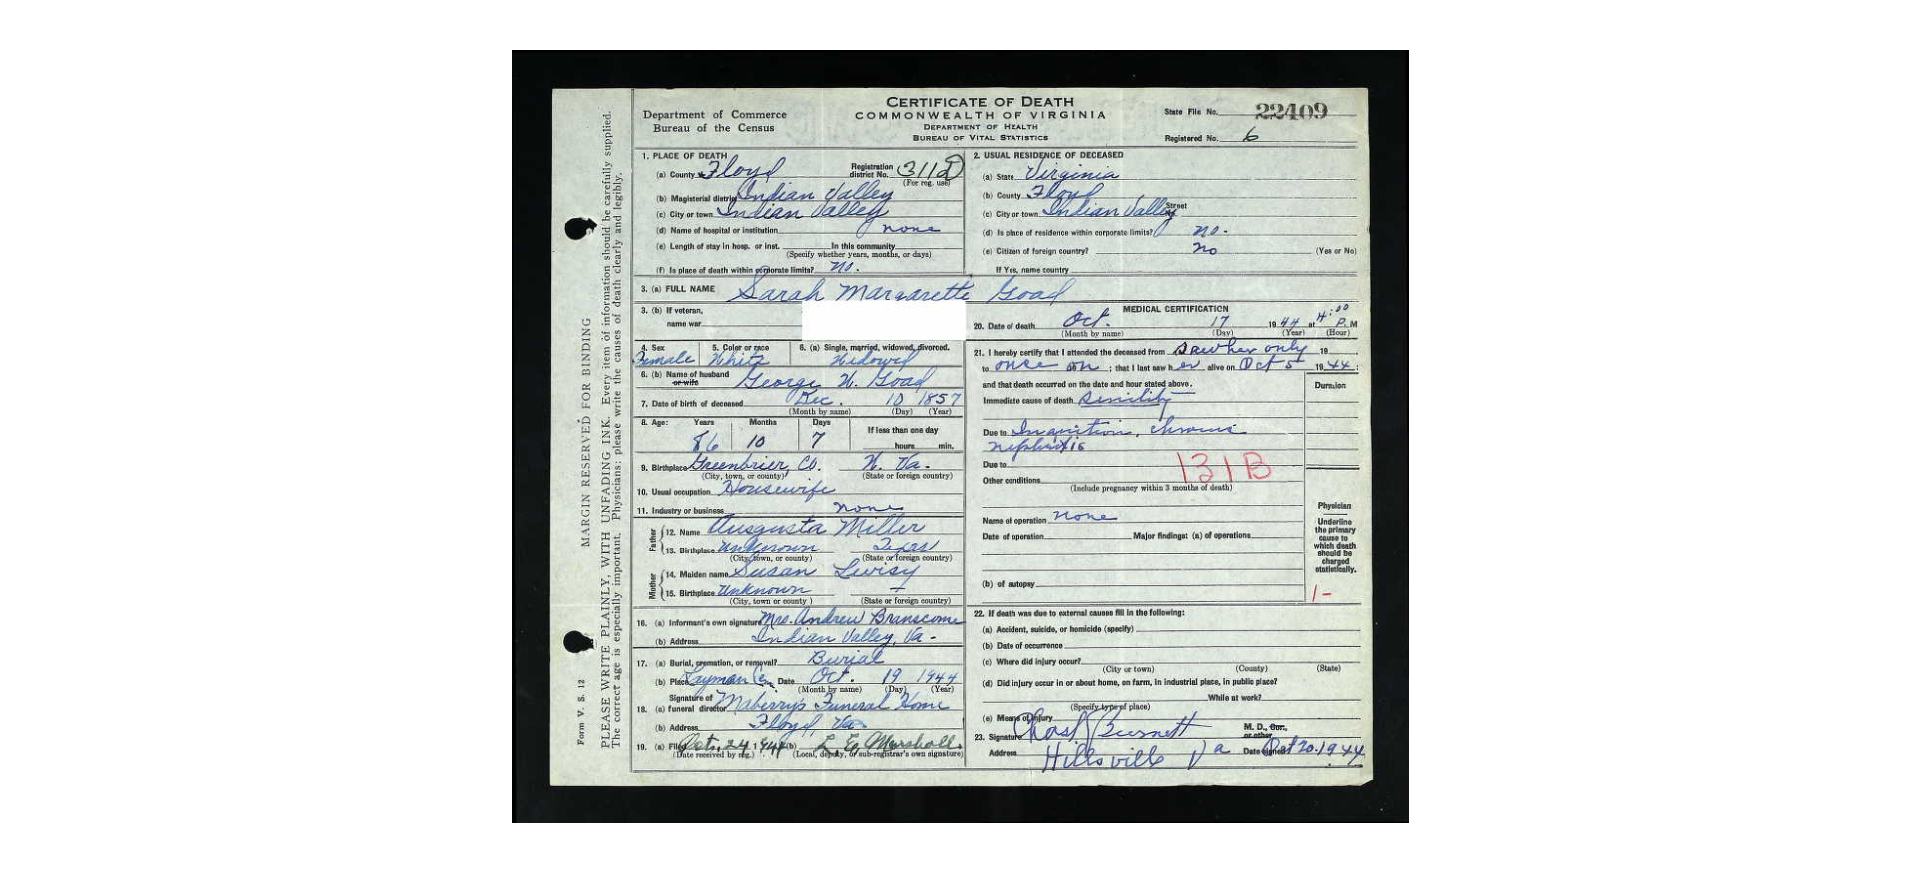 CERTIFICATE OF DEATH
COMMONWEALTH OF VIRGINIA
DEPARTMENT OF HEALTH
BUREAU OF VITAL STATISTICS
Department of Commerce
Bureau of the Census
State File No. 22409
Registered No. 6
MARGIN RESERVED FOR BINDING
PLEASE WRITE PLAINLY, WITH UNFADING INK. Every item of information should be carefully supplied.
The correct age is especially important. Physicians: please write the causes of death clearly and legibly.
Form V. S. 12
1. PLACE OF DEATH
(a) County Floyd Registration district No. 311D
(For reg. use)
(b) Magisterial district Indian Valley
(c) City or town Indian Valley
(d) Name of hospital or institution none
(e) Length of stay in hosp. or inst. In this community
(Specify whether years, months, or days)
(f) Is place of death within corporate limits? no.
2. USUAL RESIDENCE OF DECEASED
(a) State Virginia
(b) County Floyd
(c) City or town Indian Valley Street
(d) Is place of residence within corporate limits? no.
(e) Citizen of foreign country? no (Yes or No)
If Yes, name country
3. (a) FULL NAME Sarah Margarette Goad
3. (b) If veteran,
name war
4. Sex 5. Color or race 6. (a) Single, married, widowed, divorced.
Female White Widowed
6. (b) Name of husband or wife George W. Goad
7. Date of birth of deceased Dec. 10 1857
(Month by name) (Day) (Year)
8. Age: Years Months Days If less than one day
86 10 7 hours min.
9. Birthplace Greenbrier, Co. W. Va.
(City, town, or county) (State or foreign country)
10. Usual occupation Housewife
11. Industry or business none
Father
12. Name Ausgusta Miller
13. Birthplace Unknown Texas
(City, town, or county) (State or foreign country)
Mother
14. Maiden name Susan Lewisy
15. Birthplace Unknown
(City, town or county) (State or foreign country)
16. (a) Informant's own signature Mrs. Andrew Branscome
(b) Address Indian Valley, Va.
17. (a) Burial, cremation, or removal? Burial
(b) Place Layman Cem. Date Oct. 19 1944
(Month by name) (Day) (Year)
18. (a) Signature of funeral director Maberry's Funeral Home
(b) Address Floyd, Va
19. (a) Filed Oct. 24, 1944 (b) L. E. Marshall
(Date received by reg.) (Local, deputy, or sub-registrar's own signature)
MEDICAL CERTIFICATION
20. Date of death Oct. 17 1944 at 4:00 P. M
(Month by name) (Day) (Year) (Hour)
21. I hereby certify that I attended the deceased from Saw her only 19
to once on ; that I last saw her alive on Oct 5 1944;
and that death occurred on the date and hour stated above. Duration
Immediate cause of death Senility
Due to Inanition, chronic
nephritis
Due to
131B
Other conditions
(Include pregnancy within 3 months of death)
Name of operation none
Date of operation Major findings: (a) of operations
(b) of autopsy
Physician
Underline
the primary
cause to
which death
should be
charged
statistically.
1-
22. If death was due to external causes fill in the following:
(a) Accident, suicide, or homicide (specify)
(b) Date of occurrence
(c) Where did injury occur?
(City or town) (County) (State)
(d) Did injury occur in or about home, on farm, in industrial place, in public place?
While at work?
(Specify type of place)
(e) Means of injury
23. Signature Chas F Burnett M. D., Cor., or other
Address Hillsville Va Date signed Oct 20. 1944